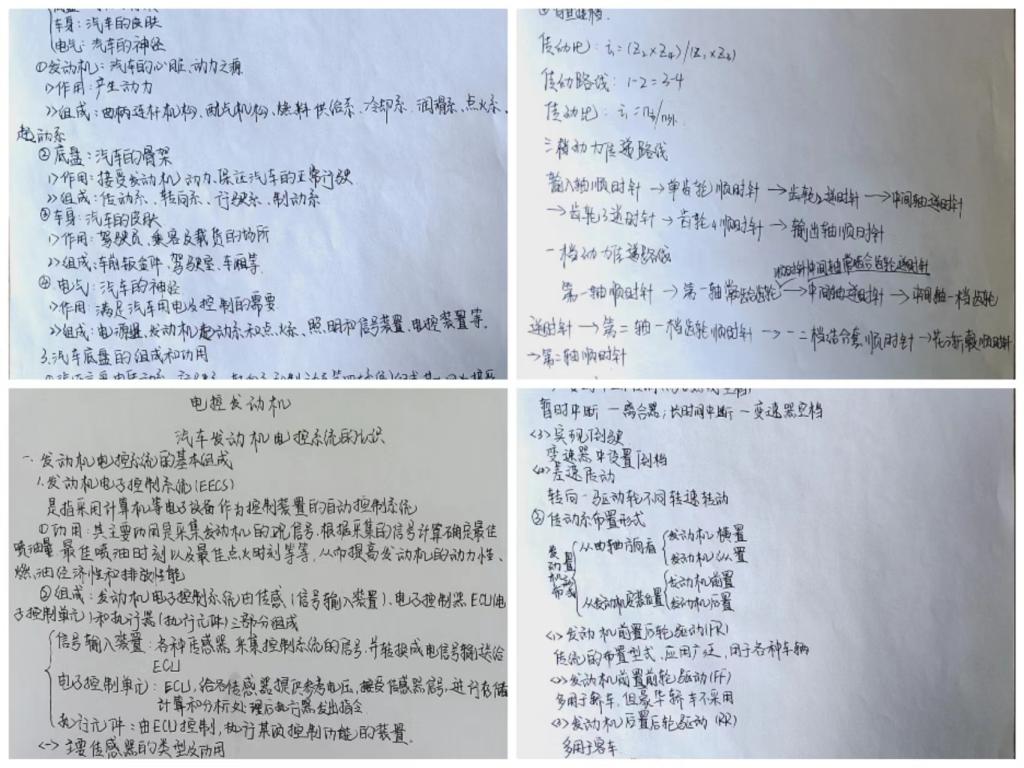 车身：汽车的皮肤
电气：汽车的神经
①发动机：汽车的心脏、动力之源
1>作用：产生动力
2>组成：曲柄连杆机构、配气机构、燃料供给系、冷却系、润滑系、点火系、
起动系
②底盘：汽车的骨架
1>作用：接受发动机动力、保证汽车的正常行驶
2>组成：传动系、转向系、行驶系、制动系
③车身：汽车的皮肤
1>作用：驾驶员、乘客及载货的场所
2>组成：车前钣金件、驾驶室、车厢等.
④电气：汽车的神经
1>作用：满足汽车用电及控制的需要
2>组成：电源盘、发动机起动系和点火系、照明和信号装置、电控装置等.
3.汽车底盘的组成和功用
传动比：i=(Z₂×Z₄)/(Z₁×Z₃)
传动路线：1-2=3-4
传动比：i=n入/n出
三档动力传递路线
输入轴顺时针→单齿轮1顺时针→齿轮2逆时针→中间轴逆时针
→齿轮3逆时针→齿轮4顺时针→输出轴顺时针
一档动力传递路线
顺时针中间轴常啮合齿轮逆时针
第一轴顺时针→第一轴常啮合齿轮→中间轴逆时针→中间轴一档齿轮
逆时针→第二轴一档齿轮顺时针→一二档结合套顺时针→花键毂顺时针
→第二轴顺时针
电控发动机
汽车发动机电控系统的认识
一、发动机电控系统的基本组成
1.发动机电子控制系统(EECS)
是指采用计算机等电子设备作为控制装置的自动控制系统
①功用：其主要功用是采集发动机的工况信号，根据采集的信号计算确定最佳
喷油量、最佳喷油时刻以及最佳点火时刻等等，从而提高发动机的动力性、
燃油经济性和排放性能
②组成：发动机电子控制系统由传感(信号输入装置)、电子控制器ECU(电
子控制单元)和执行器(执行元件)三部分组成
信号输入装置：各种传感器，采集控制系统的信号，并转换成电信号输送给
ECU
电子控制单元：ECU，给各传感器提供参考电压，接受传感器信号，进行存储
计算和分析处理后执行器发出指令
执行元件：由ECU控制，执行某项控制功能的装置.
<一>主要传感器的类型及功用
暂时中断—离合器；长时间中断—变速器空档
<3>实现倒驶
变速器中设置倒档
<4>差速传动
转向—驱动轮不同转速转动
②传动系布置形式
发动机的布置
从曲轴方向看
发动机横置
发动机纵置
从发动机安装位置
发动机前置
发动机后置
<1>发动机前置后轮驱动(FR)
传统的布置型式，应用广泛，用于各种车辆
<2>发动机前置前轮驱动(FF)
多用于轿车，但豪华轿车不采用
<3>发动机后置后轮驱动(RR)
多用于客车